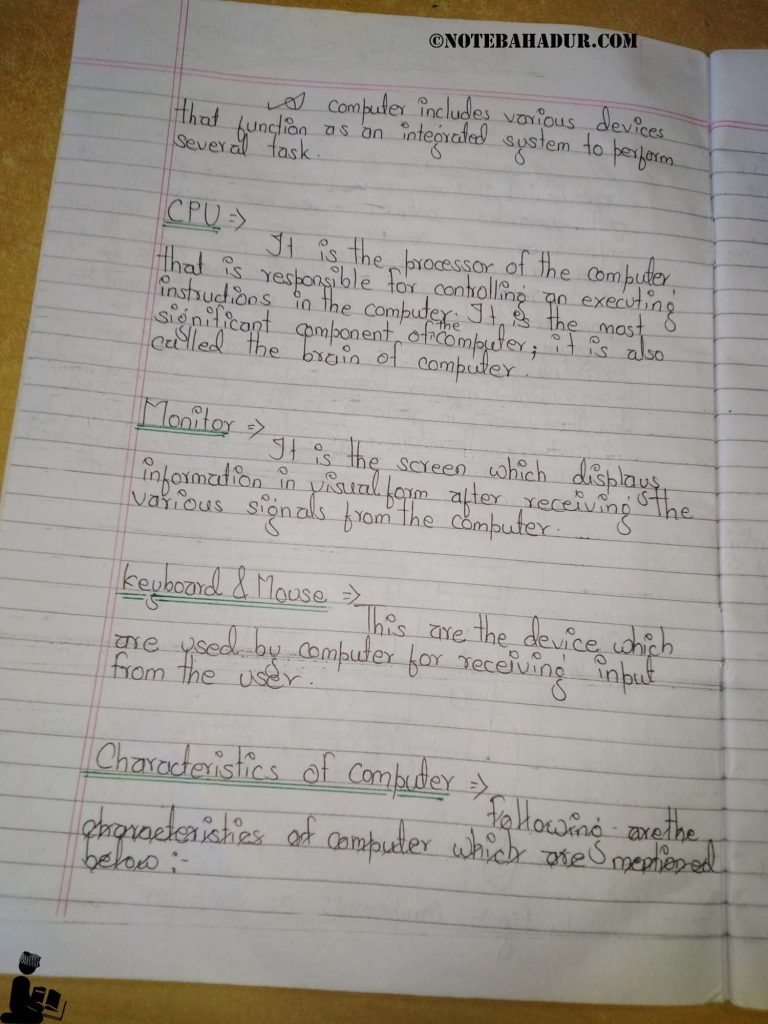 ©NOTEBAHADUR.COM
computer includes various devices
that function as an integrated system to perform
several task.
CPU ⇒
It is the processor of the computer,
that is responsible for controlling an executing
instructions in the computer. It is the most
significant component of the computer; it is also
called the brain of computer.
Monitor ⇒
It is the screen which displays
information in visual form after receiving the
various signals from the computer.
Keyboard & Mouse ⇒
This are the device which
are used by computer for receiving input
from the user.
Characteristics of Computer ⇒
following are the
characteristics of computer which are mentioned
below :-